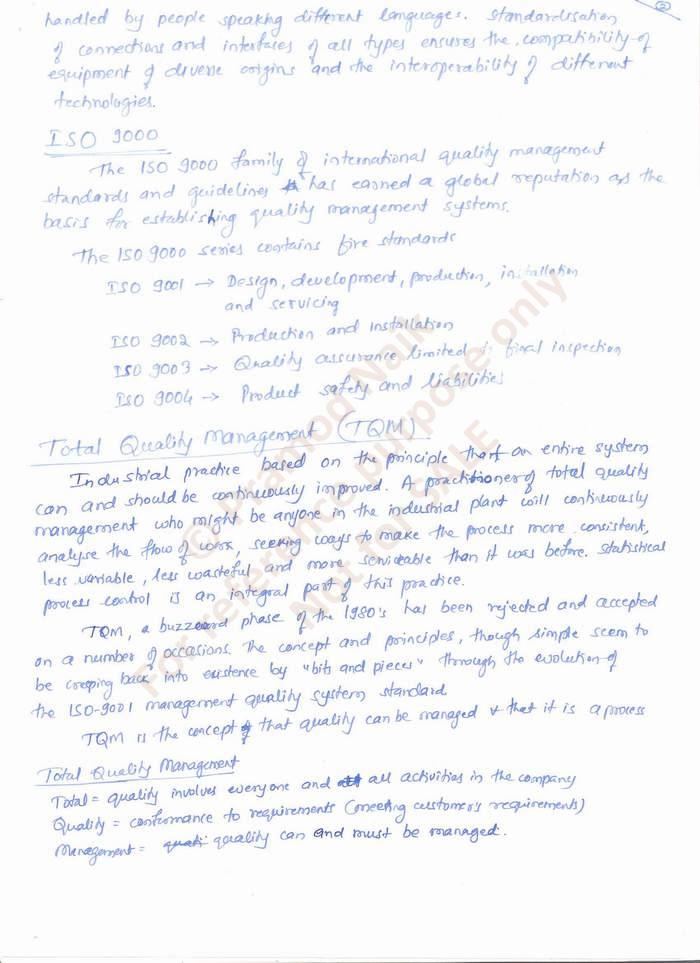 ②
handled by people speaking different languages. Standardisation
of connections and interfaces of all types ensures the compatibility of
equipment of diverse origins and the interoperability of different
technologies.
ISO 9000
The ISO 9000 family of international quality management
standards and guidelines has earned a global reputation as the
basis for establishing quality management systems.
The ISO 9000 series contains five standards
ISO 9001 → Design, development, production, installation
and servicing
ISO 9002 → Production and installation
ISO 9003 → Quality assurance limited in final inspection
ISO 9004 → Product safety and liabilities
Total Quality Management (TQM)
Industrial practice based on the principle that an entire system
can and should be continuously improved. A practitioner of total quality
management who might be anyone in the industrial plant will continuously
analyse the flow of work, seeking ways to make the process more consistent,
less variable, less wasteful and more serviceable than it was before. Statistical
process control is an integral part of this practice.
TQM, a buzzword phase of the 1980's has been rejected and accepted
on a number of occasions. The concept and principles, though simple seem to
be creeping back into existence by "bits and pieces" through the evolution of
the ISO-9001 management quality system standard
TQM is the concept that quality can be managed & that it is a process
Total Quality Management
Total = quality involves everyone and all activities in the company
Quality = conformance to requirements (meeting customer's requirements)
Management = quality can and must be managed.
© Pramod Naik
For reference purpose only
Not for SALE